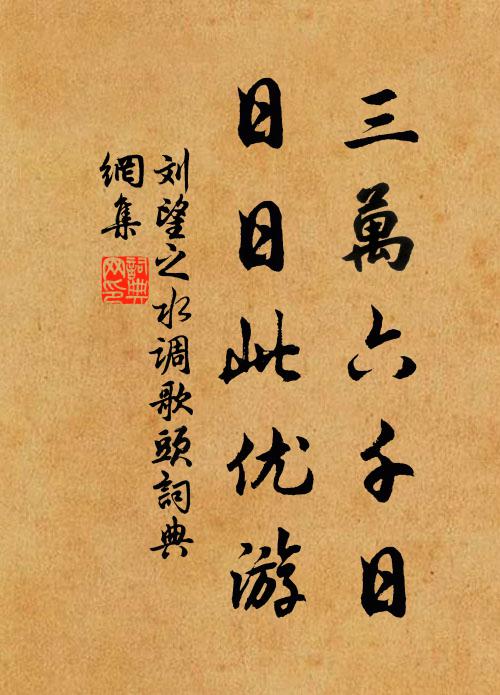 三萬六千日
日日此优游
刘望之水调歌頭詞典
網集
詞典网印